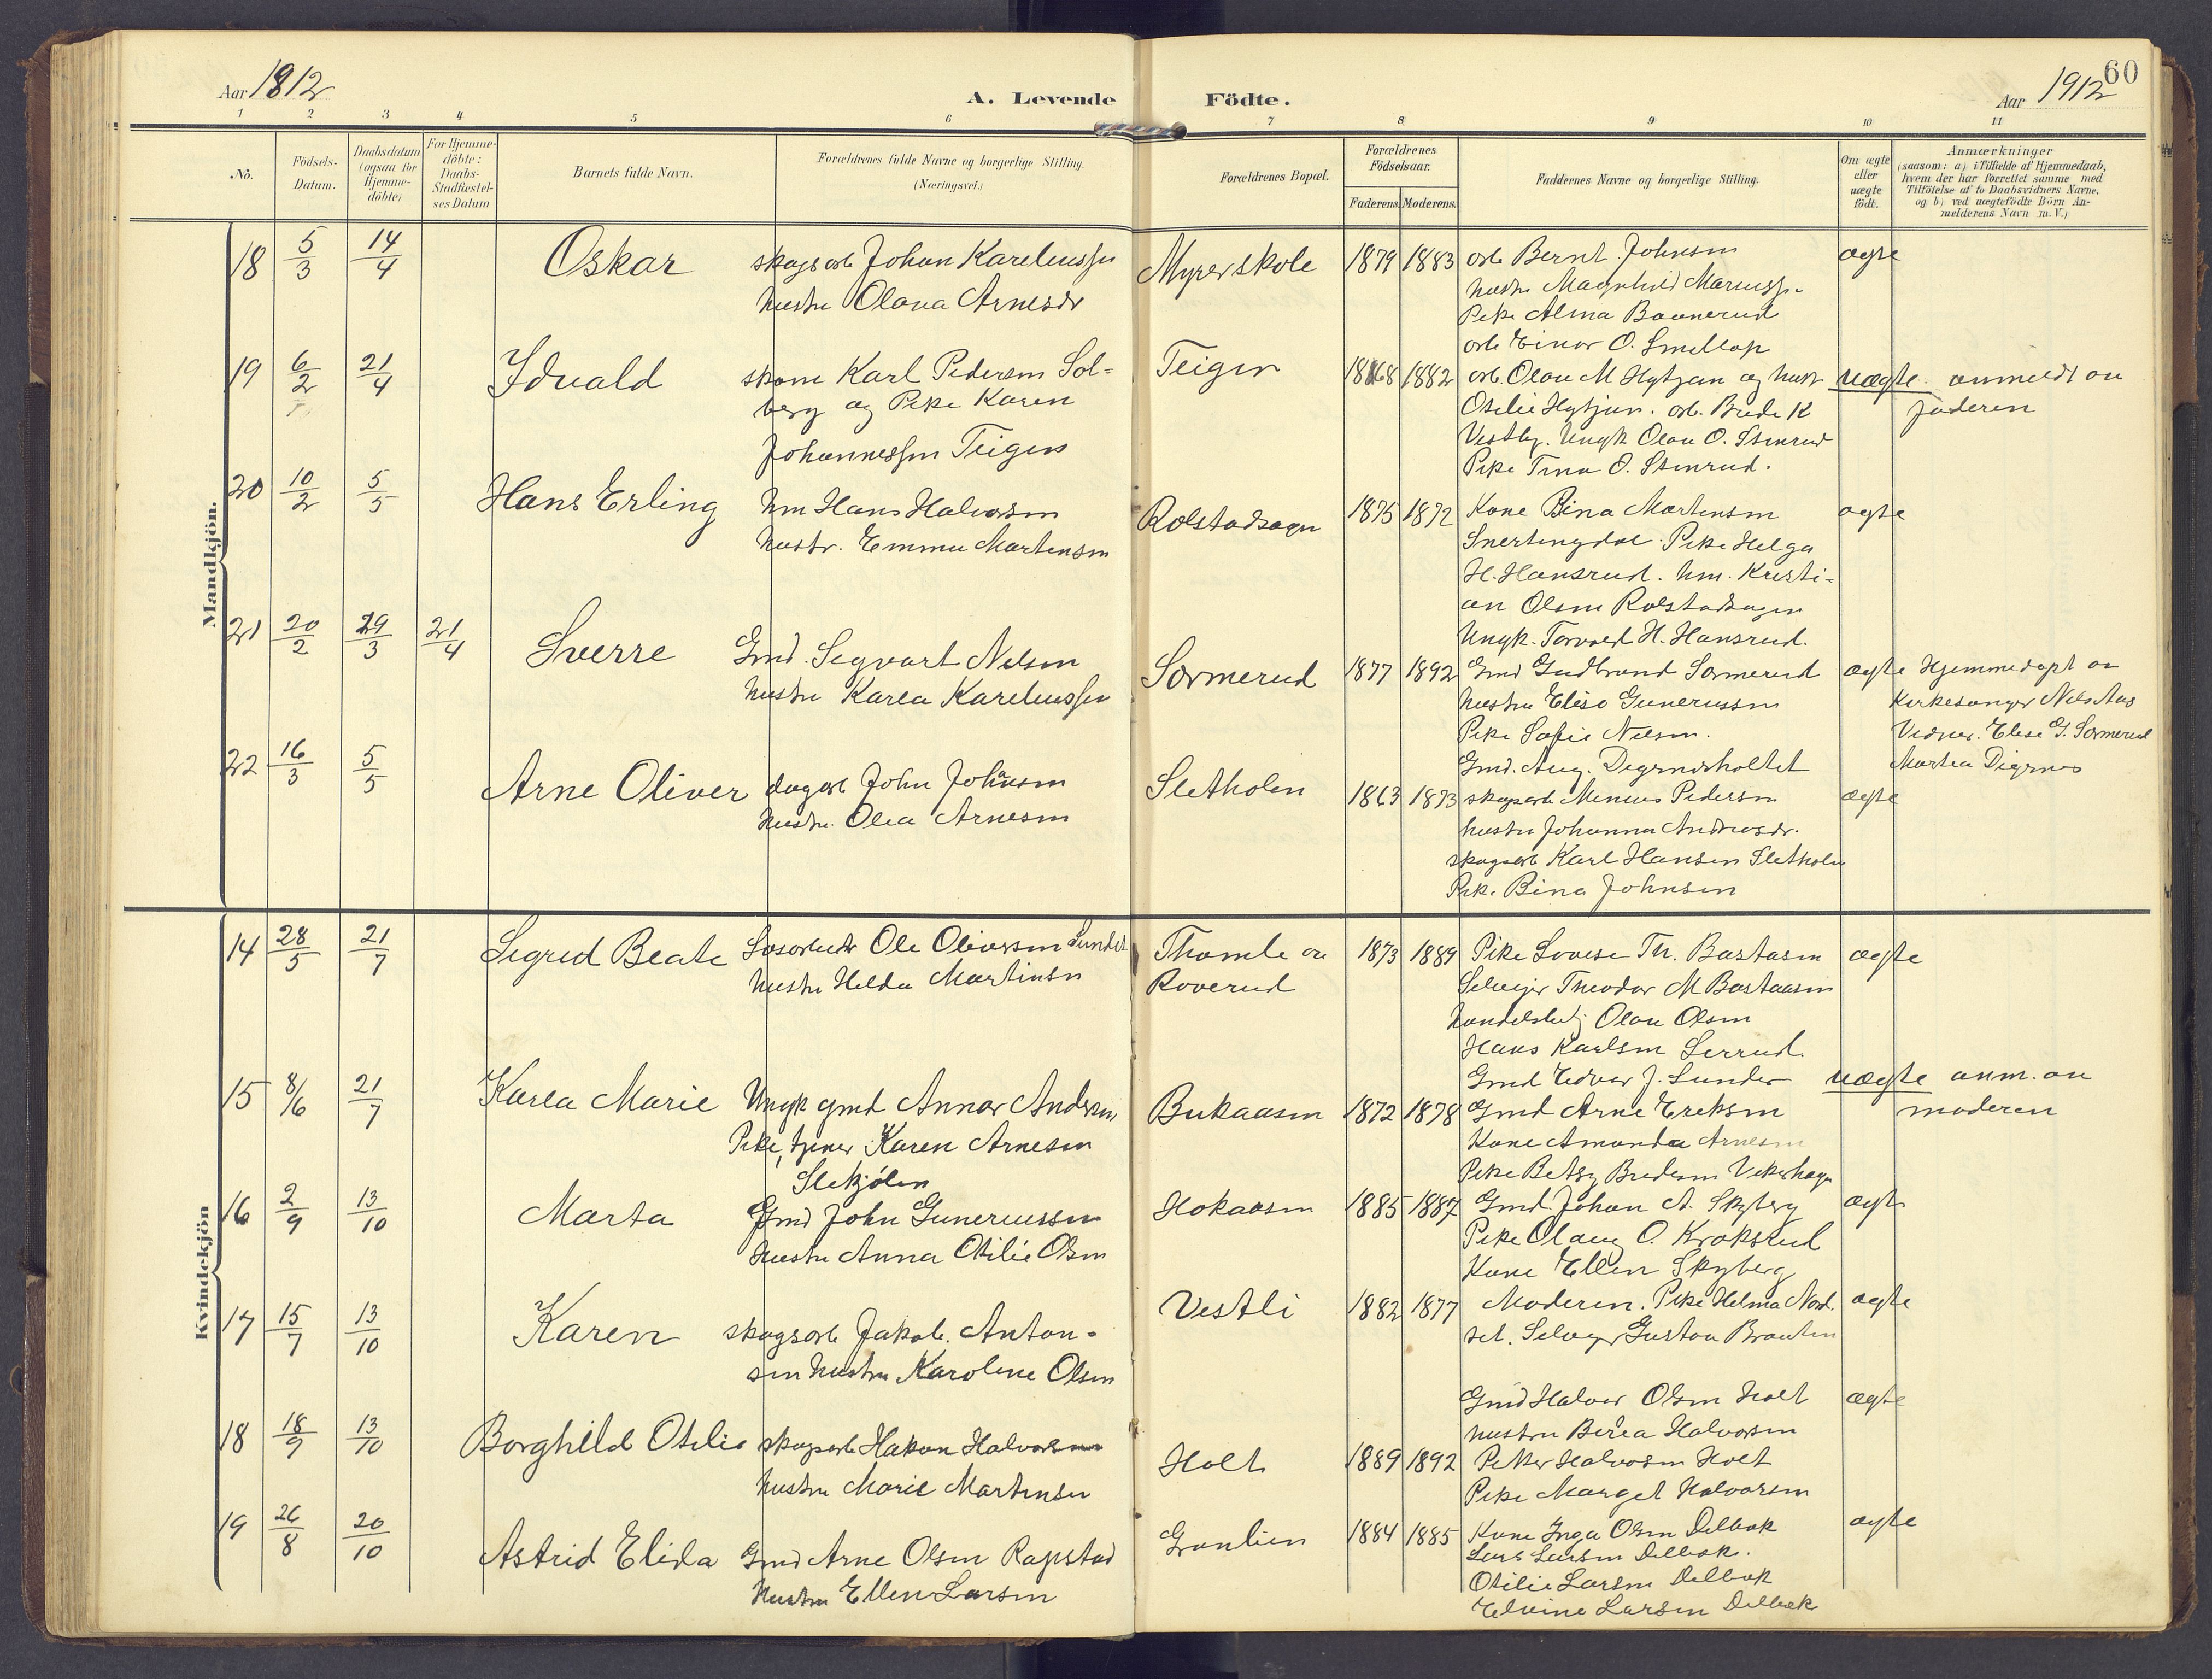 Aar 1812
A. Levende Födte.
Aar 1912
60
1 2 3 4 5 6 7 8 9 10 11
No.
Födsels-
Datum.
Daabsdatum
(ogsaa for
Hjemme-
döbte)
For Hjemme-
döbte:
Daabs-
Stadfæstel-
ses Datum
Barnets fulde Navn.
Forældrenes fulde Navne og borgerlige Stilling.
(Næringsvei.)
Forældrenes Bopæl.
Forældrenes
Födselsaar.
Faderens. Moderens.
Faddernes Navne og borgerlige Stilling.
Om ægte
eller
uægte
födt.
Anmærkninger
(saasom: a) i Tilfælde af Hjemmedaab,
hvem der har forrettet samme med
Tilföielse af to Daabsvidners Navne,
og b) ved uægtefödte Börn An-
melderens Navn m. V.)
Mandkjön.
18 5/3 14/4 Oskar skogsarb Johan Kareliussen Myrerskole 1879 1883 arb Bernt Johnsen ægte
hustru Olava Arnesdr
hustru Magnhild Mariuss.
Pike Alma Baanerud
arb Einar O. Smellop
19 6/2 21/4 Idvald skom Karl Pedersen Sol- Teigen 1868 1882 arb. Olav M Hytjan og hust uægte anmeldt av
berg og Pike Karen
Otilie Hytjan. arb. Brede K
faderen
Johannessen Teigen
Vestby. Ungk Olav O. Stenrud
Pike Tina O. Stenrud.
20 10/2 5/5 Hans Erling hm Hans Halvorsen Rolstadsagen 1875 1872 Kone Bina Martensen ægte
hustr. Emma Martensen
Snertingdal. Pike Helga
H. Hansrud. hm. Kristi-
an Olsen Rolstadsagen
Ungk. Torvald H. Hansrud.
21 20/2 29/3 21/4 Sverre Gmd. Segvart Nilsen Sørmerud 1877 1892 Gmd Gudbrand Sørmerud ægte Hjemmedøpt av
hustru Karla Kareliussen
hustru Elise Gunerussen
Kirkesanger Nils Aas
Pike Sofie Nilsen.
Vidner. Elise G. Sørmerud
Gmd. Aug. Degrnesholtet
Martea Digrnes
22 16/3 5/5 Arne Oliver dagarb John Johansen Sletholen 1863 1873 skogsarb Menius Pedersen ægte
hustru. Olea Arnesen
hustru Johanna Andreasdr.
skogsarb Karl Hansen Sletholen
Pik. Bina Johnsen
Kvindekjön
14 28/5 21/7 Sigred Beate Ole Oliversen Sundet Thomle av 1873 1889 Pike Lovise Th. Bastasen ægte
hustru Helda Martinsen
Roverud
Selveier Theodor M Bastaasen
handelsbetj Olav Olsen
Hans Karlsen Serrud.
Gmd Edvar J. Sunder
15 8/6 21/7 Karla Marie Ungk gmd Annar Andersen Bukaasen 1872 1878 Gmd Arne Ereksen uægte anm. av
Pike, tjener Karen Arnesen
Kone Amanda Arnesen
moderen
Slekjølen
Pike Betsy Bredesen Vikerhagen
16 2/9 13/10 Marta Gmd John Gunerussen Hokaasen 1885 1887 Gmd Johan A. Skyberg ægte
hustru Anna Otilie Olsen
Pike Olaug O. Kroksrud
Kone Ellen Skyberg
17 15/7 13/10 Karen skogsarb Jakob. Anton- Vestli 1882 1877 Moderen. Pike Helma Nord. ægte
sen hustru Karoline Olsen
set. Selveier Gustav Braaten
18 18/9 13/10 Borghild Otilie skogsarb Hakon Halvorsen Holt 1889 1892 Gmd Halvor Olsen Holt ægte
hustru Marie Martensen
hustru Berea Halvorsen
Petter Halvorsen Holt
Pike Marget Halvorsen
19 26/8 20/10 Astrid Elida Gmd Arne Olsen Rapstad Granlien 1884 1885 Kone Inga Olsen Delbæk ægte
hustru Ellen Larsen
Lars Larsen Delbæk.
Otilie Larsen Delbæk
Elvine Larsen Delbæk